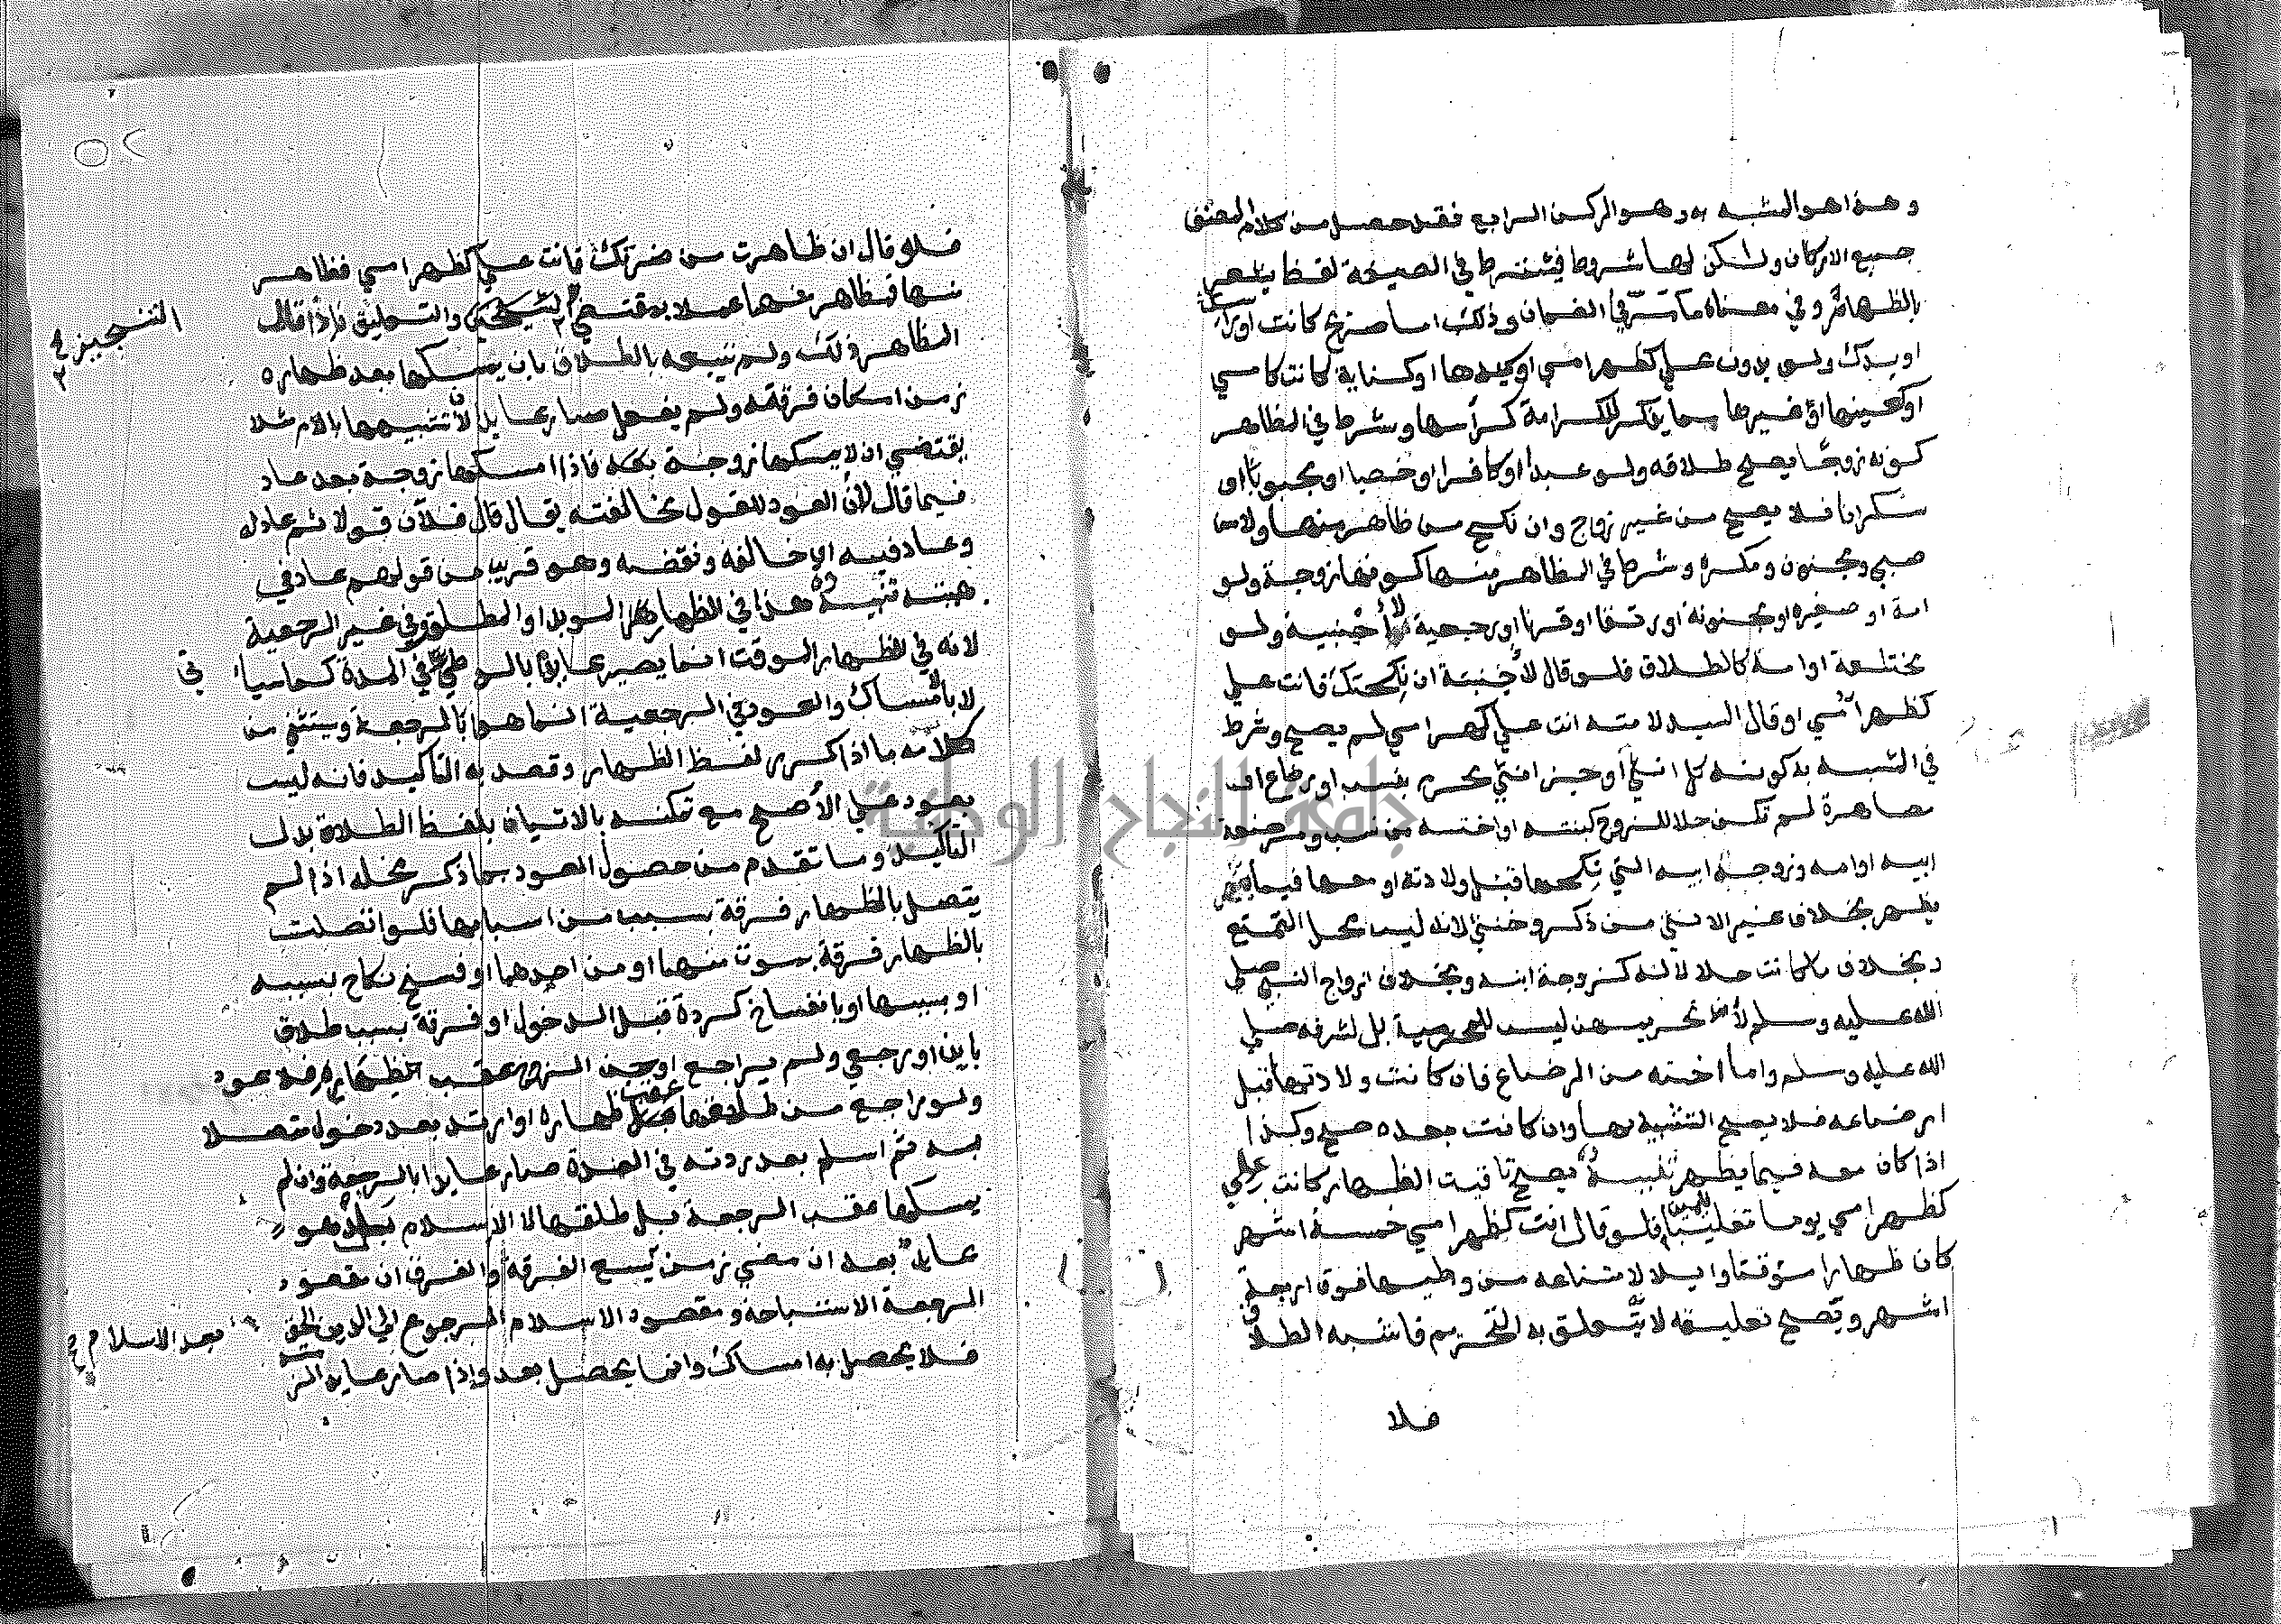 وهذا هو المشبه به وهو الركن الرابع فقد حصل من كلام المصنف
جميع الاركان ولكن لها شروط فيشترط في الصيغة لفظ يشعر
بالظهار وفي معناه ما مر في الضمان وذلك اما صريح كانت او راسك
او يدك ولو بدون علي كظهر امي او كيدها او كناية كانت كامي
او كعينها او غيرها مما يذكر للكرامة كرأسها وشرط في المظاهر
كونه زوجا يصح طلاقه ولو عبدا او كافرا او خصيا او مجبوبا او
سكرانا فلا يصح من غير زواج وان نكح من ظاهر منها ولا من
صبي ومجنون ومكره وشرط في المظاهر منها كونها زوجة ولو
امة او صغيره او مجنونة او رتقا او قرنا او رجعية لا أجنبية ولو
مختلعة او امة كالطلاق فلو قال لأجنبية ان نكحتك فانت علي
كظهر امي او قال السيد لامته انت علي كظهر امي لم يصح وشرط
في المشبه به كونه كل انثي أو جزء انثي محرم بنسب او رضاع او
مصاهرة لم تكن حلا للزوج كبنته او اخته من نسب ومرضعة
ابيه او امه وزوجة ابيه التي نكحها قبل ولادته او معها فيما
يظهر بخلاف غير الانثي من ذكر وخنثي لانه ليس محل التمتع
وبخلاف من كانت حلا له كزوجة ابنه وبخلاف ازواج النبي صلي
الله عليه وسلم لأن تحريمهن ليس للمحرمية بل لشرفه صلي
الله عليه وسلم واما اخته من الرضاع فان كانت ولادتها قبل
ارضاعه فلا يصح التشبيه بها وان كانت بعده صح وكذا
اذا كان معه فيما يظهر تنبيه يصح تاقيت الظهار كانت علي
كظهر امي يوما تغليبا فلو قال انت كظهر امي خمسة اشهر
كان ظهارا مؤقتا وايلا لامتناعه من وطيها فوق اربعة
اشهر ويصح تعليقه لانه يتعلق به التحريم فاشبه الطلاق
فلا
فلو قال ان ظاهرت من ضرتك فانت علي كظهر امي فظاهر
منها فمظاهر منهما عملا بمقتضي والتعليق فاذا قال
التنجيز
المظاهر ذلك ولم يتبعه بالطلاق بان يمسكها بعد ظهاره
زمن امكان فرقة ولم يفعل صار عايدا لأن تشبيهها بالام مثلا
يقتضي ان لا يمسكها زوجة بعده فاذا امسكها زوجة بعد عاد
فيما قال لأن العود للقول مخالفته يقال قال فلان قولا ثم عاد له
وعاد فيه اي خالفه ونقضه وهو قريب من قولهم عاد في
هبته تنبيه هذا في الظهار الموبد او المطلق وفي غير الرجعية
لانه في الظهار الموقت انما يصير عايدا بالوطي في المدة كما سياتي
لا بالامساك والعود في الرجعية انما هو بالرجعة ويستثني من
كلامه ما اذا كرر لفظ الظهار وقصد به التأكيد فانه ليس
بعود علي الأصح مع تمكنه بالاتيان بلفظ الطلاق بدل
التأكيد وما تقدم من حصول العود بما ذكر محله اذا لم
يتصل بالظهار فرقة بسبب من اسبابها فلو اتصلت
بالظهار فرقة بموت منهما او من احدهما او فسخ نكاح بسببه
او بسببها او بانفساخ كردة قبل الدخول او فرقة بسبب طلاق
باين او رجعي ولم يراجع او جن الزوج عقب الظهار فلا عود
ولو راجع من طلقها عقب ظهاره او ارتد بعد دخول متصلا
به ثم اسلم بعد ردته في العدة صار عايدا بالرجعة وان لم
يمسكها عقب الرجعة بل طلقها لا الاسلام بل هو
عايد بعده ان مضي زمن يسع الفرقة والفرق ان مقصود
الرجعة الاستباحة ومقصود الاسلام الرجوع الي الدين الحق
بعد الاسلام صح
فلا يحصل به امساك وانما يحصل بعد واذا صار عايدا لز
جامعة النجاح الوطنية